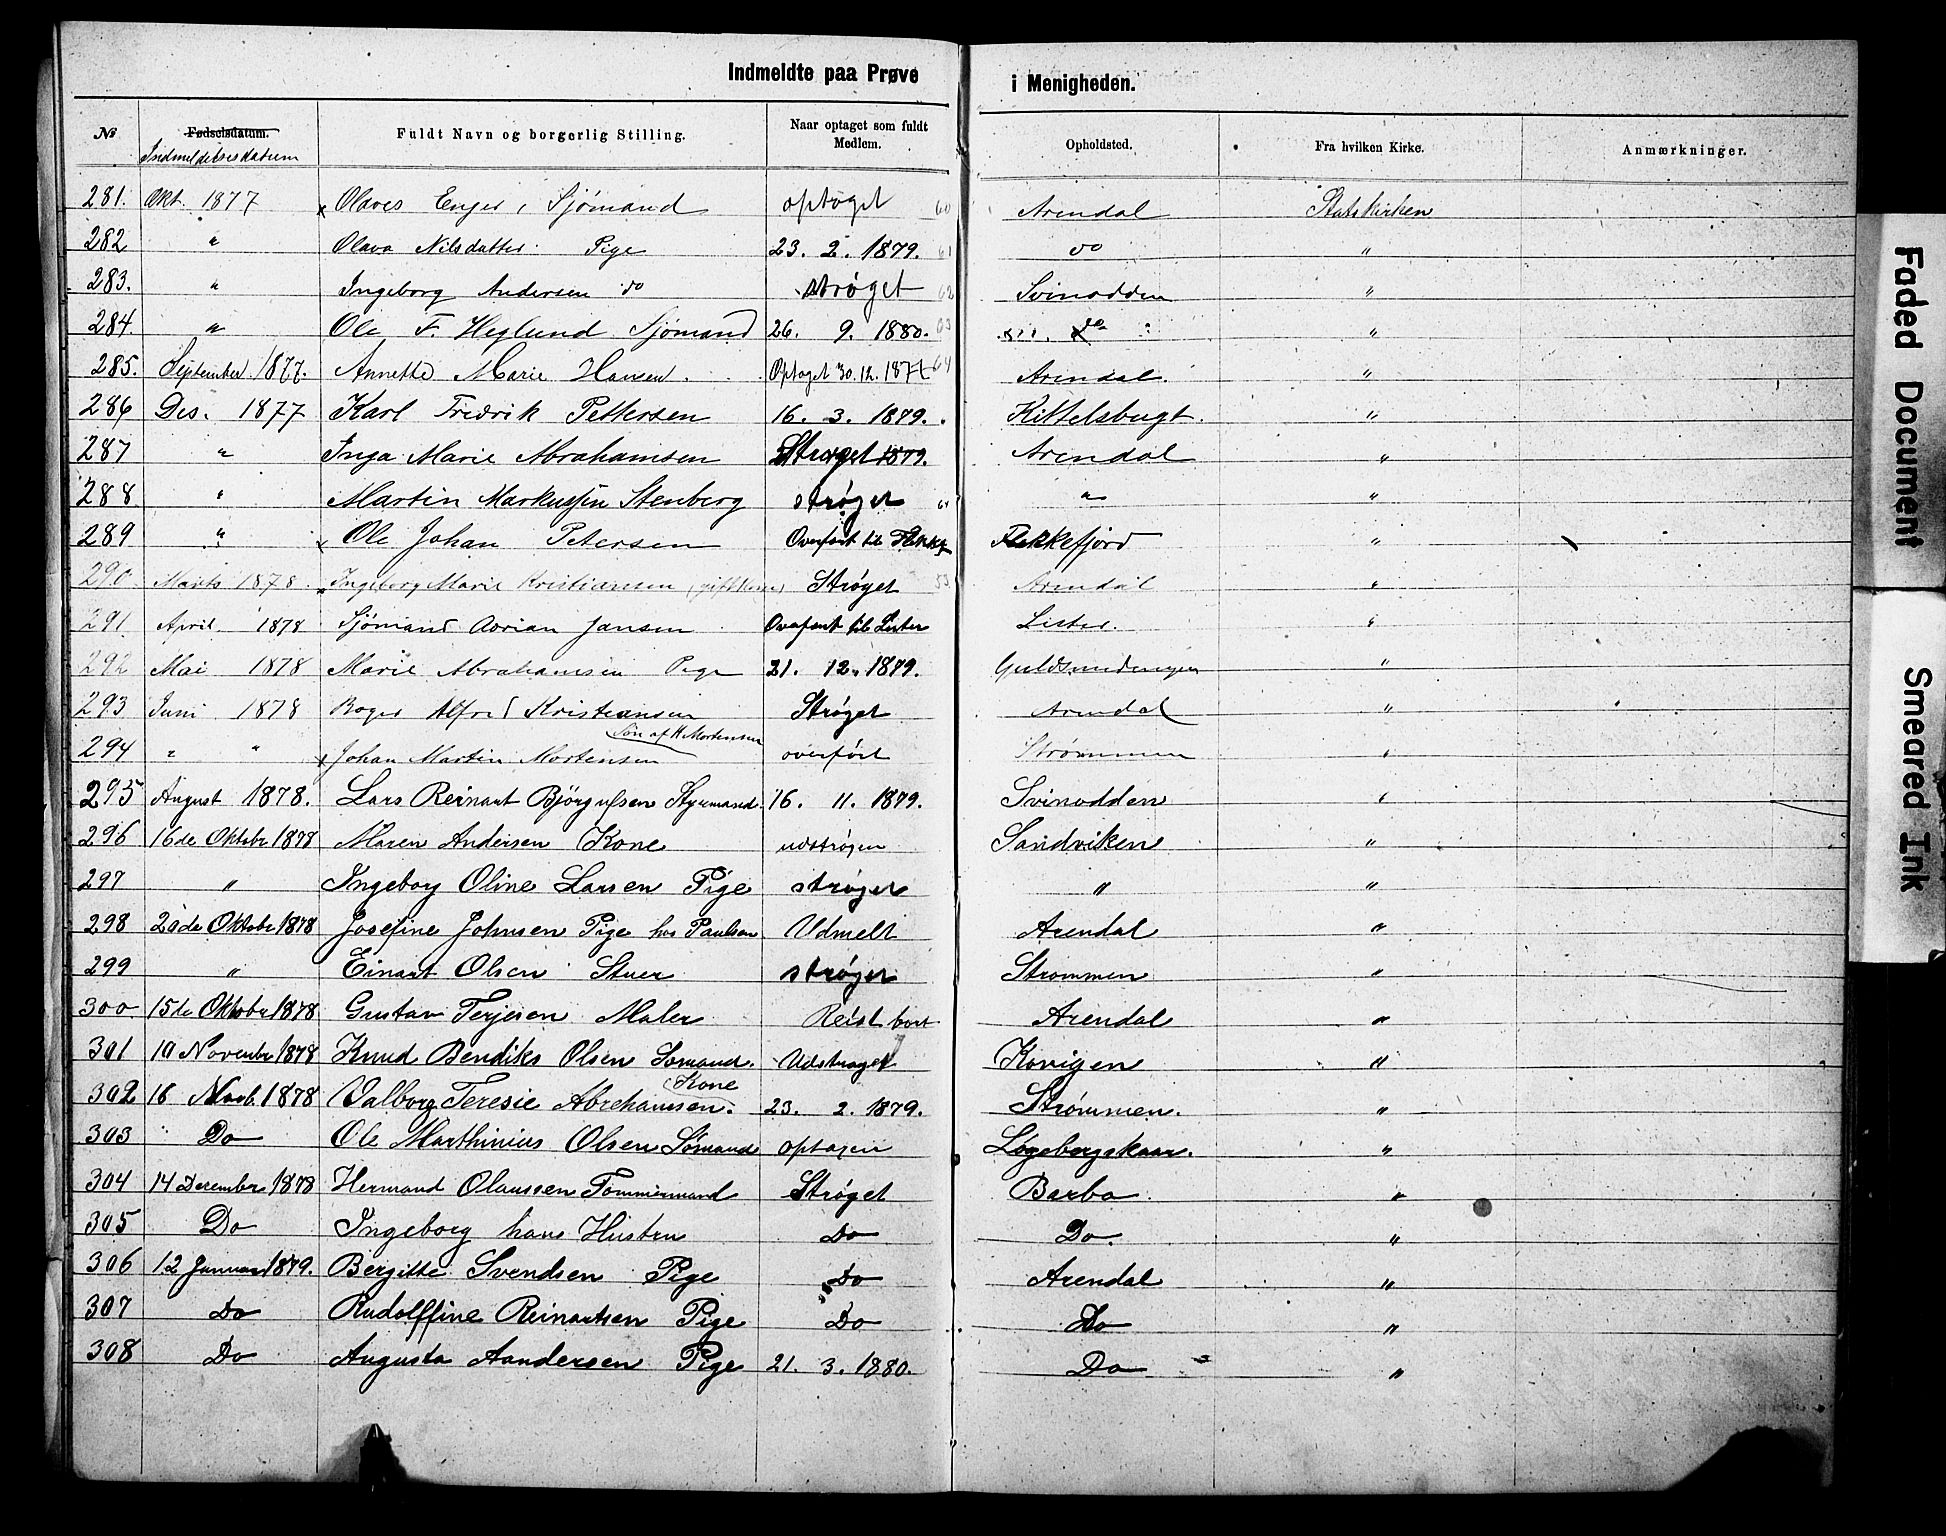 Indmeldte paa Prøve i Menigheden.
№ Fødselsdatum. Fuldt Navn og borgerlig Stilling. Naar optaget som fuldt Medlem. Opholdsted. Fra hvilken Kirke. Anmærkninger.
Indmeldelsesdatum
281. Okt. 1877 x Olaves Enger, Sjømand optaget 60 Arendal Statskirken
282 " Olava Nilsdatter Pige 23. 2. 1879. 61 do "
283. " Ingeborg Andersen do strøget 62 Svinodden "
284 " Ole F. Heglund Sjømand 26. 9. 1880. 63 do "
285. September 1877. Annette Marie Hansen. Optaget 30.12.1877 64 Arendal. "
286 Des. 1877 Karl Fredrik Pettersen 16. 3. 1879. Kittelsbugt. "
287 " Inga Marie Abrahamsen Strøget 1879. Arendal "
288 " Martin Markussen Stenberg strøget 64 " "
289 " x Ole Johan Petersen Overført til Flekkef Flekkefjord "
290 Marts 1878. x Ingeborg Marie Kristiansen (gift Kone) Strøget 53 Arendal "
291 April 1878 Sjømand Adrian Jansen Overført til Lister Lister. "
292 Mai 1878 Marie Abrahamsen Pige 21. 12. 1879. Guldsmedengen "
293 Juni 1878 Roger Alfred Kristiansen Strøget Arendal "
Søn af H Mortensen
294 " " x Johan Martin Mortensen overført Strømmen "
295 August 1878. Lars Reinart Bjørgulfsen Styrmand. 16. 11. 1879. Svinodden "
296 16de Oktobr 1878 Maren Andersen Kone udstrøgen Sandviken "
297 " Ingeborg Oline Larsen Pige strøget " "
298 20de Oktobr 1878 Josefine Johnsen Pige hos Paulsen Udmelt Arendal "
299 " Einart Olsen Stuer strøget Strommen "
300 15de Oktobr 1878 Gustav Terjesen Maler Reist bort Arendal "
301 10 Novembr 1878 Knud Bendiks Olsen Sømand. Udstrøget Kovigen "
Kone
302 16 Novb. 1878 Valborg Teresie Abrehamsen. 23. 2. 1879. Strømmen. "
303 " Do Ole Marthinius Olsen Sømand optagen Løgebergskaar. "
304 14 December 1878 Hermand Olaussen Tømmermand Strøget Barbo "
305 Do Ingeborg hans Hustru Do Do. "
306 12 Januar 1879. Bergitte Svendsen Pige Do Arendal "
307 Do Rudolffine Reinartsen Pige Do Do "
308 Do Augusta Aandersen Pige 21. 3. 1880. Do "
Faded Document
Smeared Ink